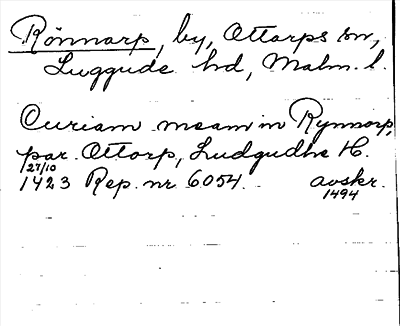 Rönnarp, by, Ottarps sn,
Luggude hd, Malm. l.
Curiam meam in Rynnorp,
par. Ottorp, Ludgudhe H.
27/10
1423 Rep. nr 6054. avskr.
1494